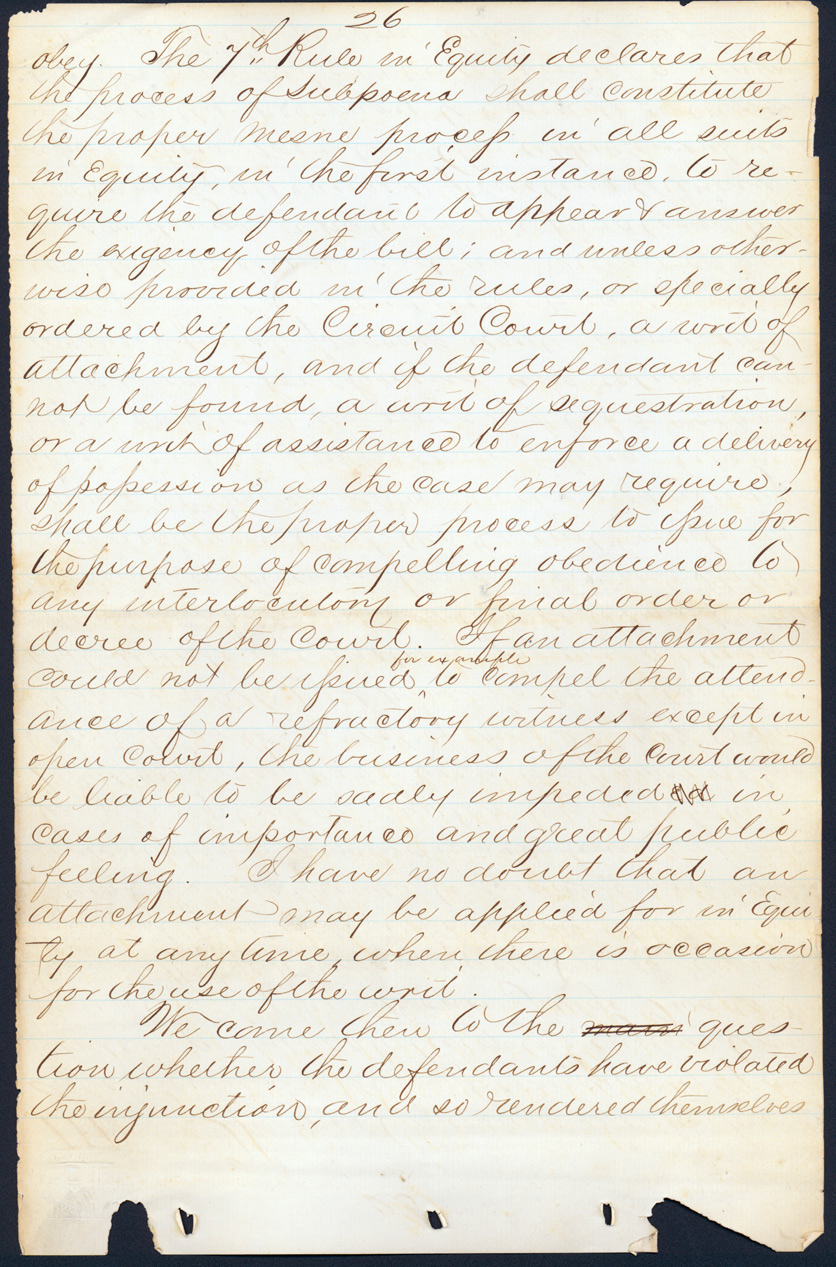 26
obey. The 7th Rule in Equity declares that
the process of Subpoena shall constitute
the proper mesne process in all suits
in Equity, in the first instance, to re-
quire the defendant to appear & answer
the exigency of the bill; and unless other-
wise provided in the rules, or specially
ordered by the Circuit Court, a writ of
attachment, and if the defendant can-
not be found, a writ of sequestration,
or a writ of assistance to enforce a delivery
of possession as the case may require,
shall be the proper process to issue for
the purpose of compelling obedience to
any interlocutory or final order or
decree of the Court. If an attachment
could not be issued, for example to compel the attend-
ance of a refractory witness except in
open Court, the business of the Court would
be liable to be sadly impeded in
cases of importance and great public
feeling. I have no doubt that an
attachment may be applied for in Equi-
ty at any time, when there is occasion
for the use of the writ.
We come then to the main ques-
tion whether the defendants have violated
the injunction, and so rendered themselves